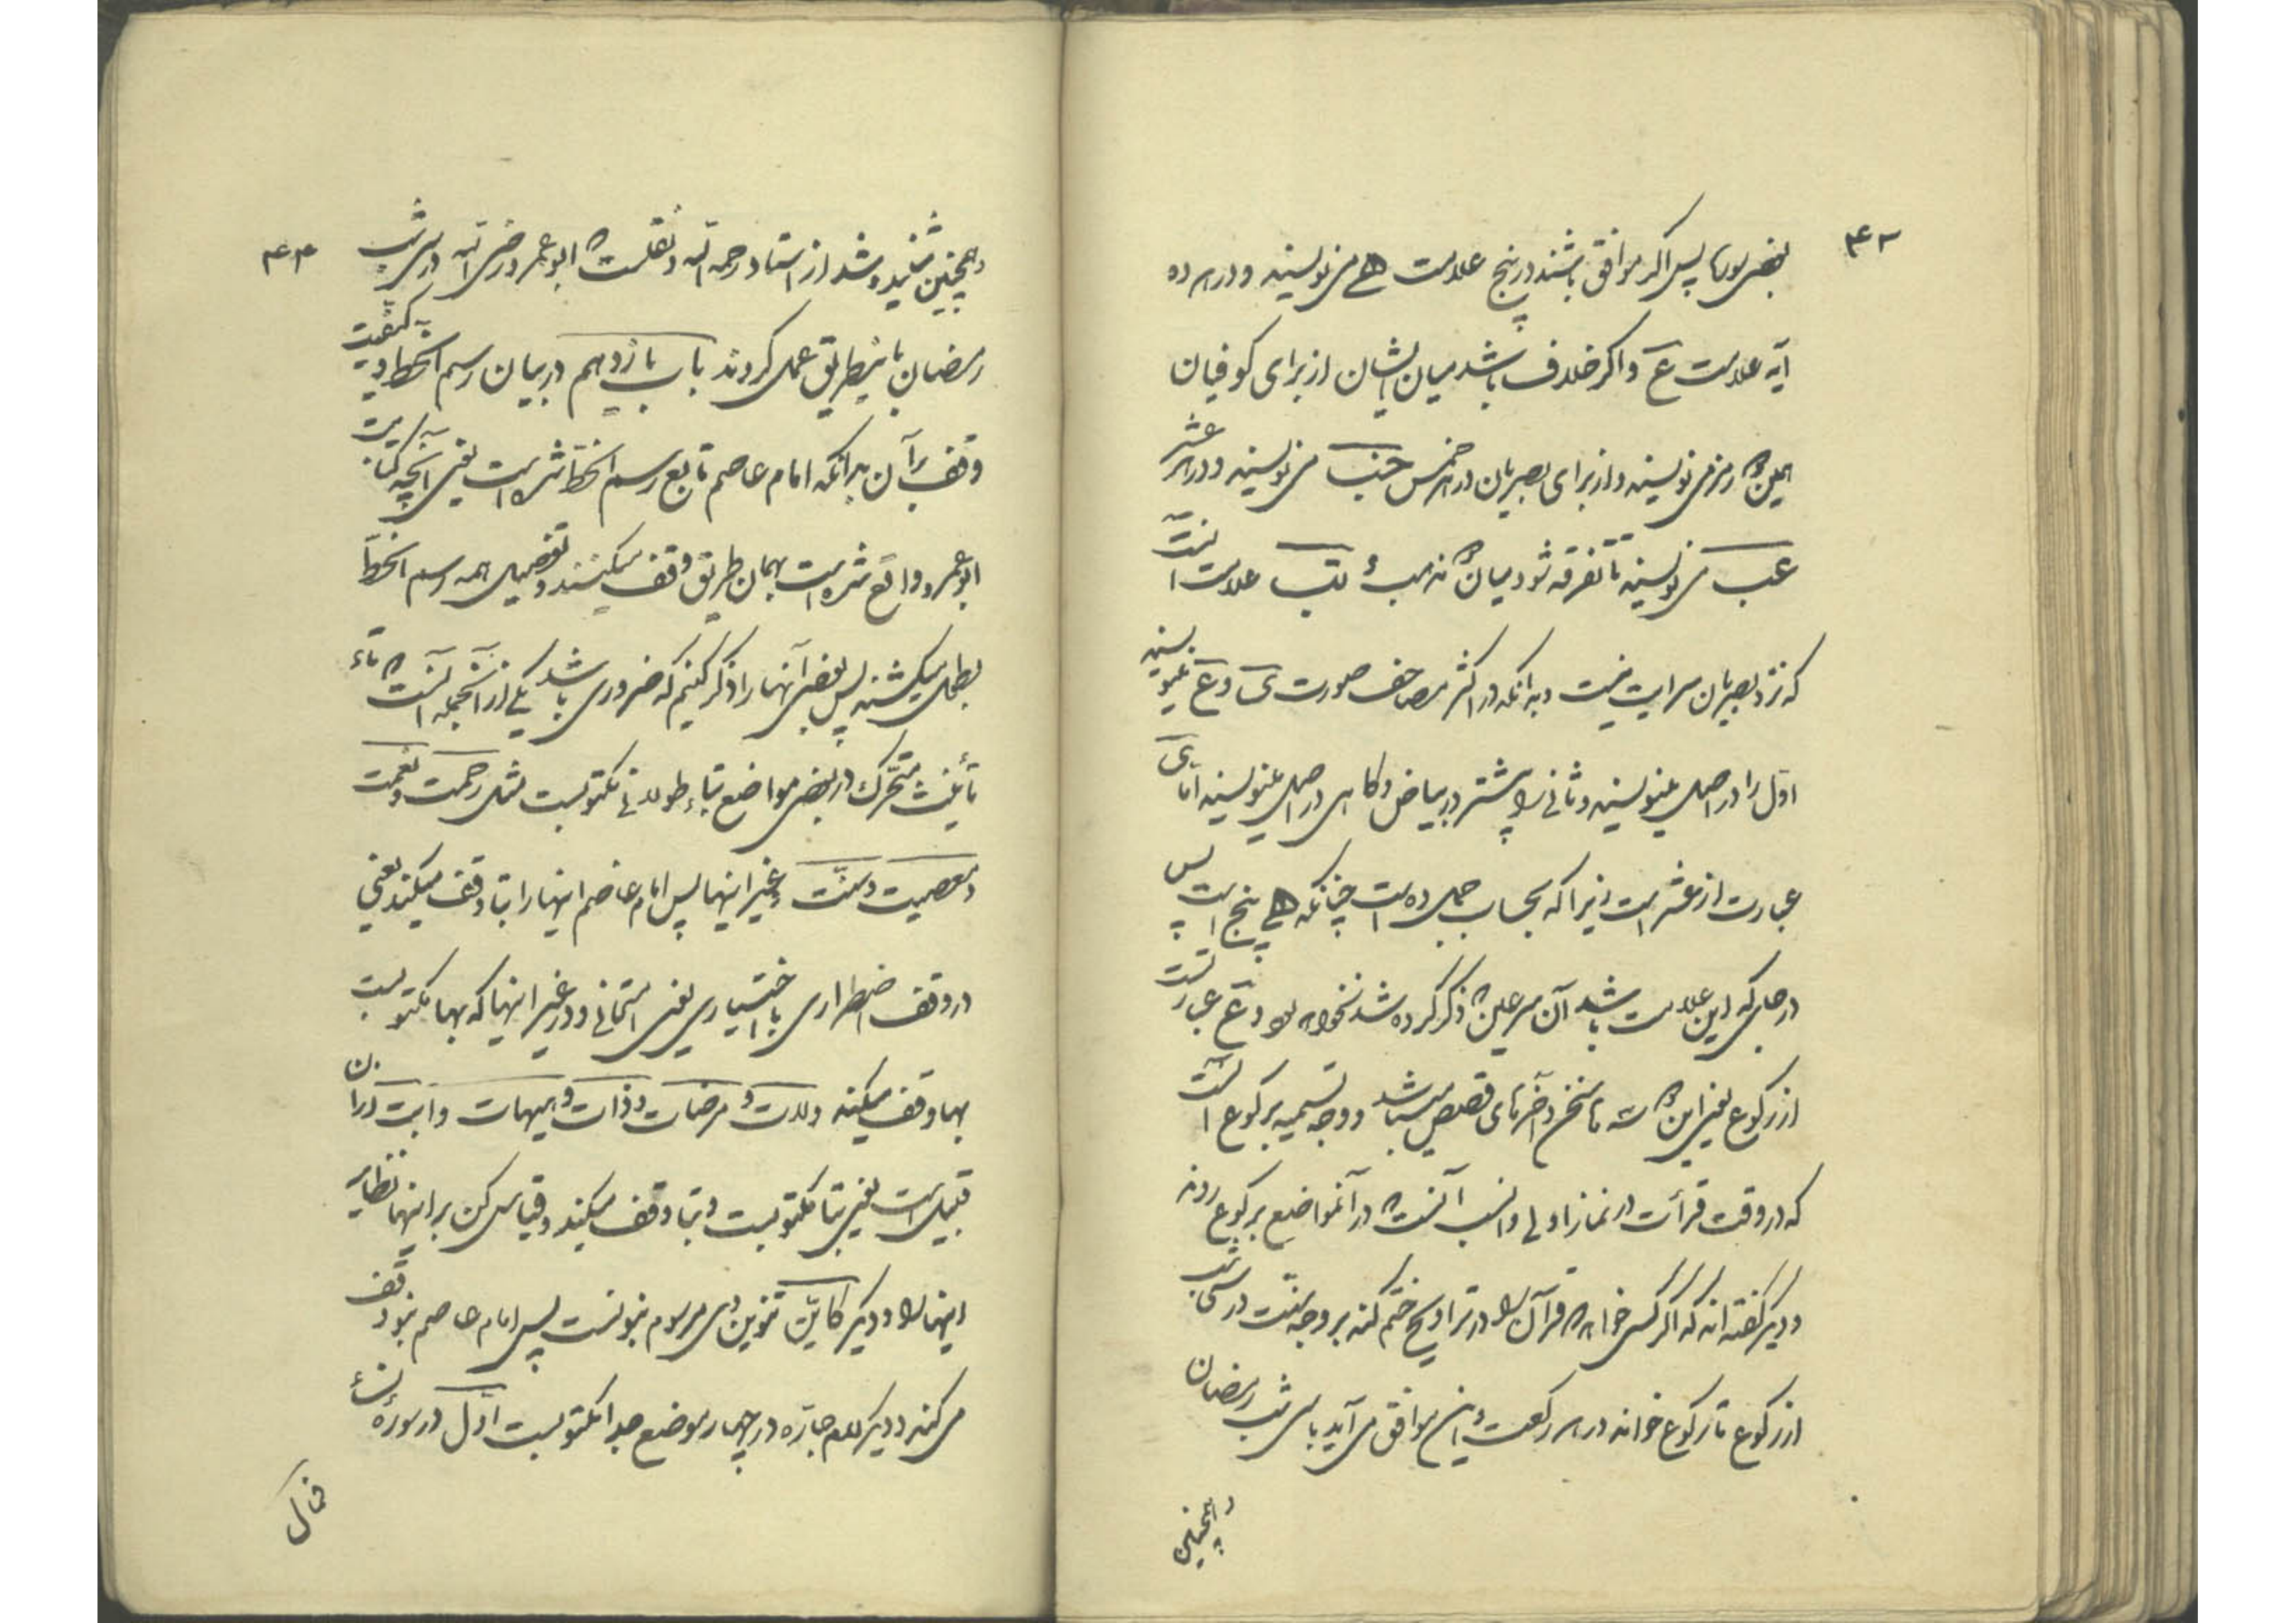 ۴۳
بعضی سورها پس اگر موافق باشند در پنج علامت ھ می نویسند و در هر ده
آیه علامت ع و اگر خلاف باشد میان ایشان از برای کوفیان
همین رمز می نویسند و از برای بصریان در هر خمس خب می نویسند و در هر عشر
عب می نویسند تا تفرقه شود میان مذهب و تب علامت آنست
که نزد بصریان سر آیت نیست و بدانکه در اکثر مصاحف صورت ی و ع مینویسند
اول را در اصل مینویسند و ثانی را پیشتر در بیاض و گاهی در اصل مینویسند اما ی
عبارت از عشر است زیرا که بحساب جمل ده است چنانکه ھ پنج است پس
در جای که این علامت باشد آن سر عین که ذکر کرده شد نخواهد بود و ع عبارتست
از رکوع یعنی این که تا سخن و آخرهای قصص میباشد و وجه تسمیه برکوع آنست
که در وقت قرأت در نماز اولی و انسب آنست که در آنمواضع برکوع روند
و دیگر گفته اند که اگر کسی خواهد که قرآن را در تراویح ختم کند بر وجه سنت در سی شب
از رکوع تا رکوع خواند در هر رکعت و این موافق می آید با سی شب رمضان
و همچنین
۴۴
و همچنین شنیده شد از استاد رحمه الله و نقلست که ابو عمرو رضی الله در سی شب
رمضان باینطریق عمل کردند باب یازدهم در بیان رسم الخط و کیفیت
وقف بر آن بدانکه امام عاصم تابع رسم الخط شده است یعنی آنچه کتابت
ابو عمرو واقع شده است بهمان طریق وقف میکنند و تفصیل همه رسم الخط
بطول میکشد پس بعضی آنها را ذکر کنیم که ضروری باشد یکی از آنجمله آنست که تاء
تأنیث متحرک در بعضی مواضع بتاء طولانی مکتوبست مثل رحمت و نعمت
و معصیت و سنت و غیر اینها پس امام عاصم اینها را بتا وقف میکند یعنی
در وقف اضطراری یا اختیاری یعنی امتحانی و در غیر اینها که بها مکتوبست
بها وقف میکند و لات و مرضات و ذات و هیهات و ابت از آن
قبیل است یعنی بتا مکتوبست و بتا وقف میکند و قیاس کن بر اینها نظایر
اینها را و دیگر کاین تنوین وی مرسوم بنونست پس امام عاصم بنون وقف
می کند و دیگر لام جاره در چهار موضع جدا مکتوبست اول در سورهٔ نساء
فمال